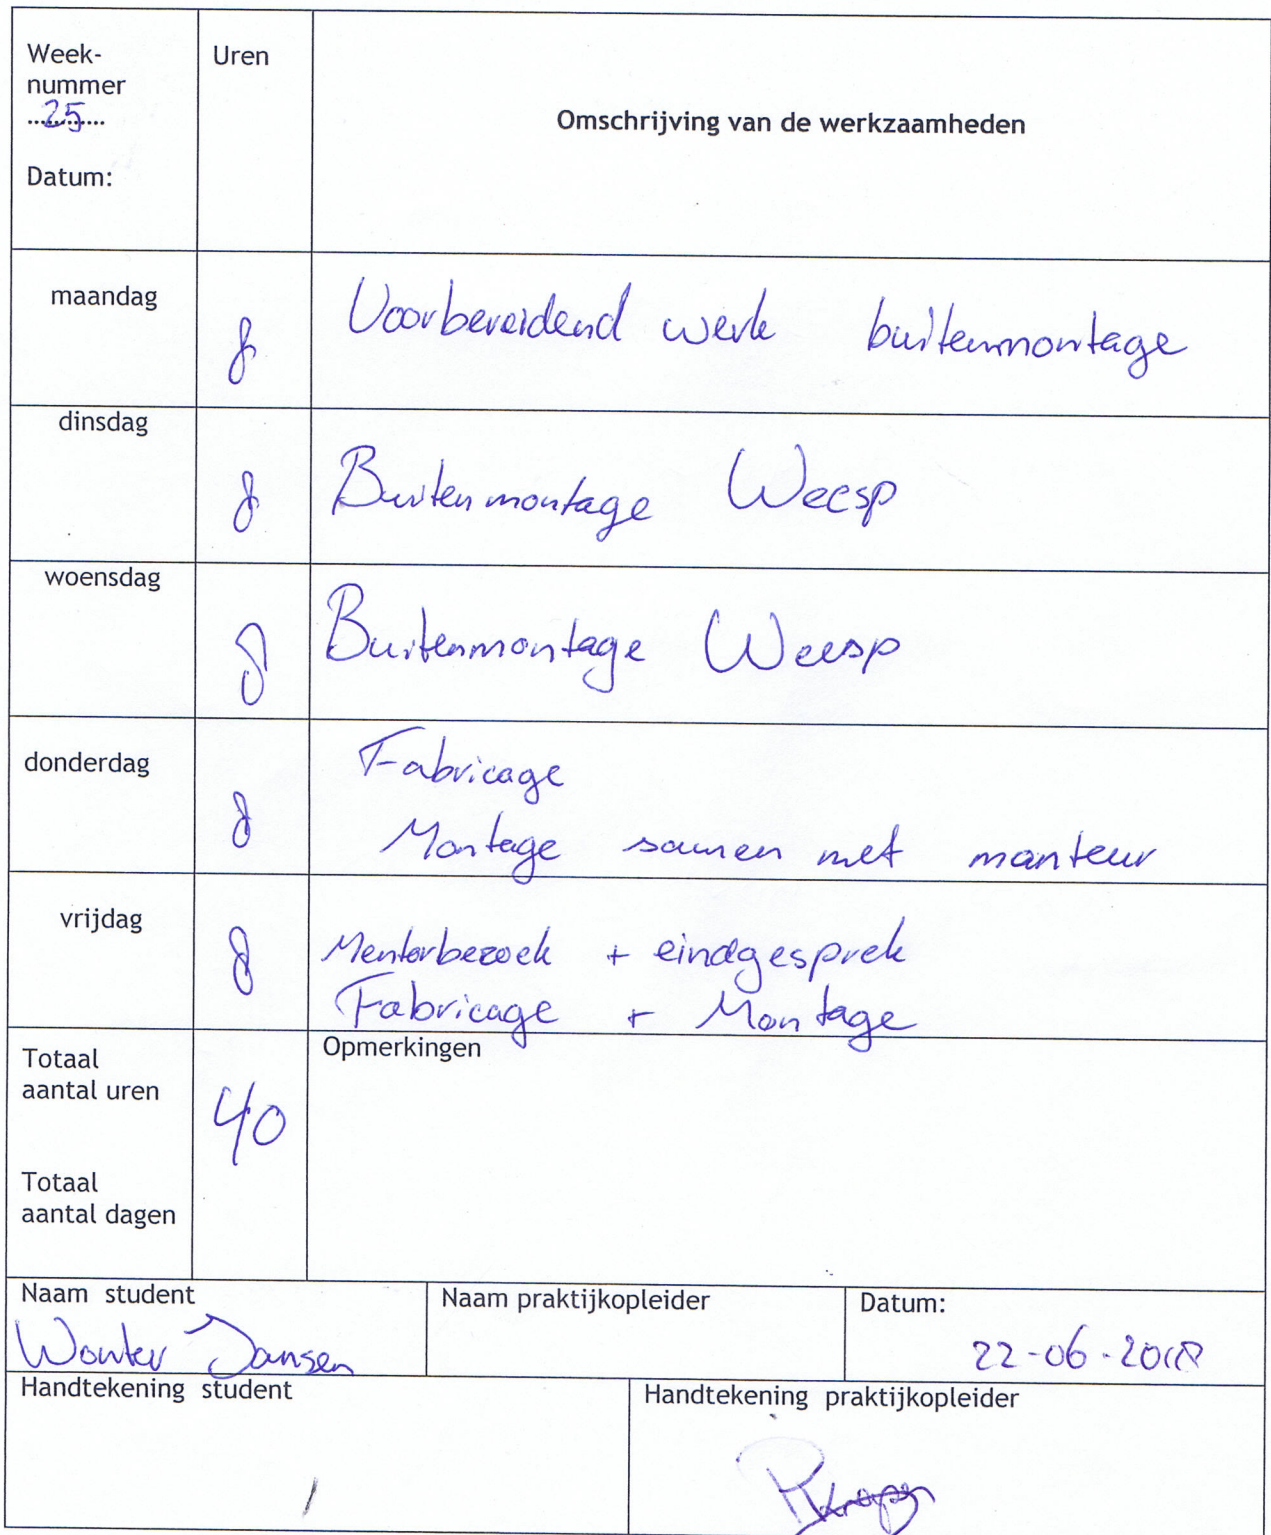 Week-
nummer
25
Datum:
Uren
Omschrijving van de werkzaamheden
maandag
8
Voorbereidend werk buitenmontage
dinsdag
8
Buitenmontage Weesp
woensdag
8
Buitenmontage Weesp
donderdag
8
Fabricage
Montage samen met manteur
vrijdag
8
Mentorbezoek + eindgesprek
Fabricage + Montage
Totaal
aantal uren
40
Totaal
aantal dagen
Opmerkingen
Naam student
Wouter Jansen
Naam praktijkopleider
Datum:
22-06-2018
Handtekening student
Handtekening praktijkopleider